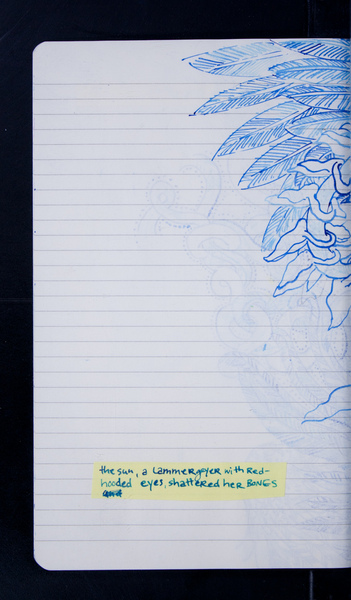 the sun, a Lammergeyer with Red-
hooded eyes, shattered her BONES